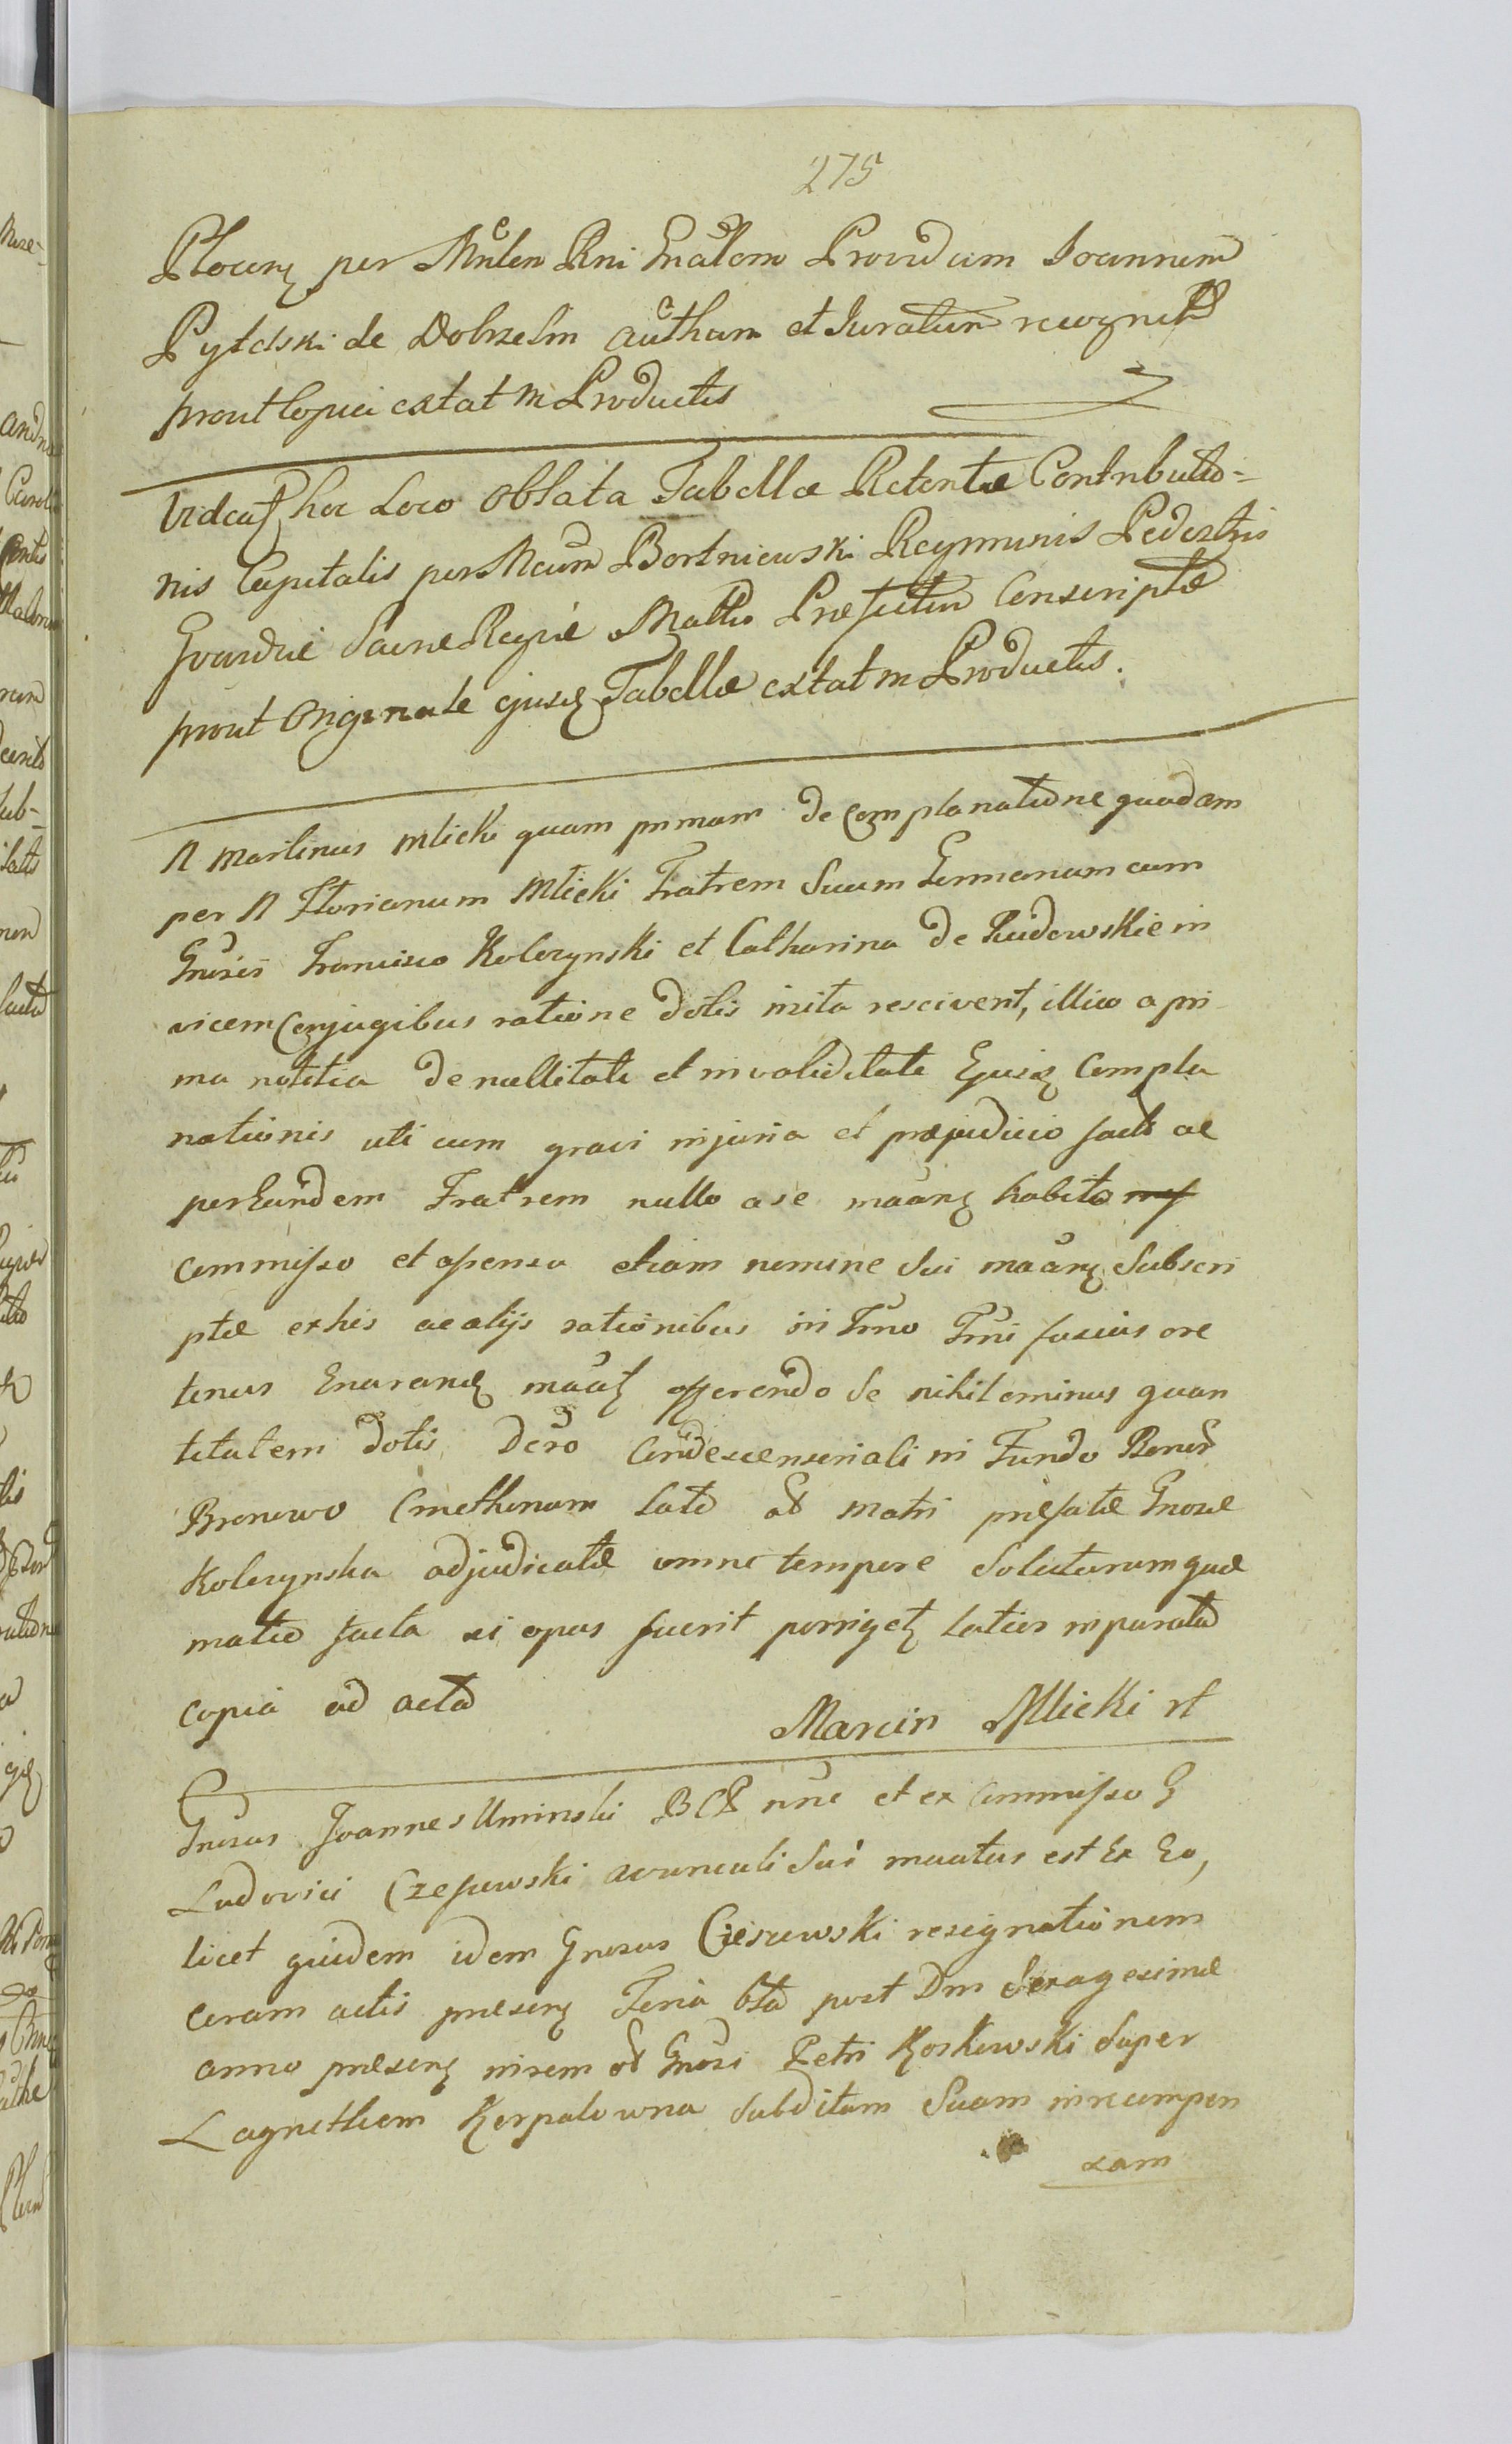 275
Plocen per Mnlem Rni Gnalem Providum Joannem
Pytelski de Dobrzelin authum et Juratum recognit
prout Copia extat in Productis
Videat hoc Loco Oblata Tabellæ Retentæ Contributio=
nis Capitalis per Mcum Bortniewski Regiminis Pedestris
Gvardiæ Sacræ Regiæ Mattis Præfectum Conscriptæ
prout Originale ejusd Tabellæ extat in Productis.
N Martinus Mlicki quam primam de Complanatione quadam
per N Florianum Mlicki Fratrem Suum Germanum cum
Gnosis Francisco Kolczynski et Catharina de Rudowskie in
vicem Conjugibus ratione dotis inita resciverit, illico a pri
ma notitia de nullitate et invaliditate Ejusd Compla
nationis uti cum gravi injuria et præjudicio facta ac
per Eundem Fratrem nullo a se maan habito
commisso et asensu etiam nomine Sui maan Subscri
ptæ ex his ac alijs rationibus in Tmo Tmi fusius ore
tenus Enaran maat offerendo Se nihilominus quan
titatem dotis Dcro Condescensoriali in Fundo Bonor
Bronowo Cmethonum lato et Matri præfatæ Gnosæ
Kolczynska adjudicatæ omni tempore Soluturum quæ
matio facta si opus fuerit porriget latior in parata
copia ad acta
Marcin Mlicki rt
Gnosus Joannes Uminski BCP nne et ex Commisso G
Ludovici Czesuwski avunculi Sui maatus est Ex Eo,
licet quidem idem Gnosus Cieszewski resignationem
coram actis præsen Feria 6ta post Dm Sexagesimæ
anno præsen in rem et Gnosi Petri Koskowski Super
Lagnethem Kerpalowna Subditam Suam in recompen
sam